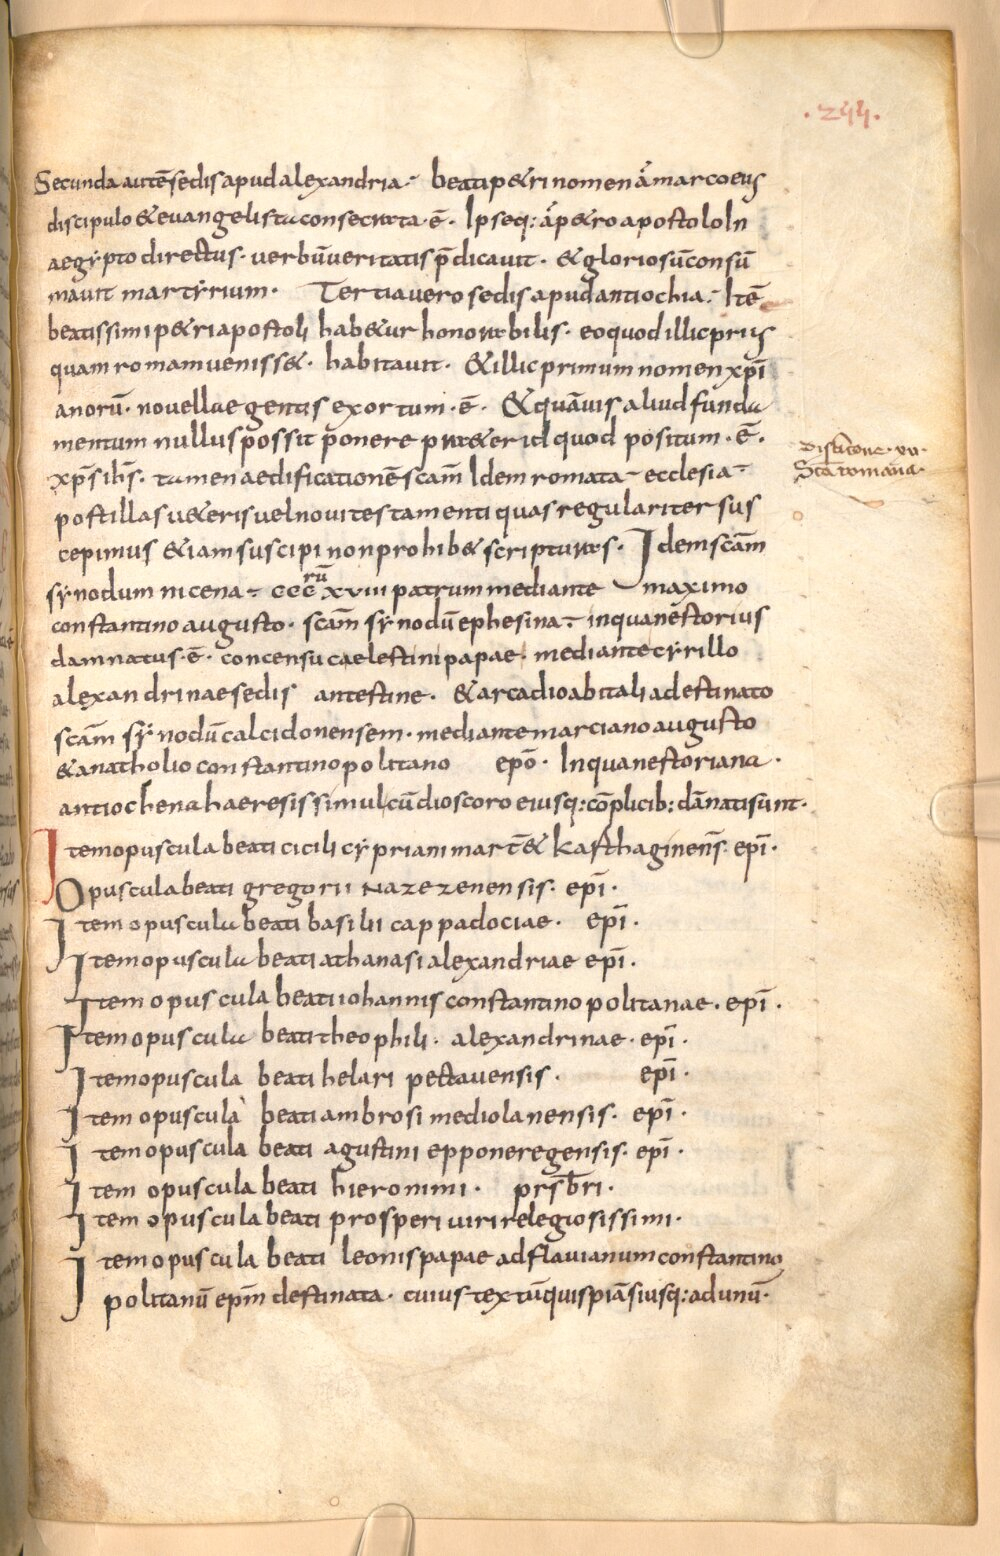 ·244·
Secunda autē sedis apud alexandria beati p&ri nomen a marco eius
discipulo & euangelista consecrata·ē· Ipseq; a p&ro apostolo In
aegypto directus· uerbū ueritatis p̄dicauit· & gloriosū consū
mauit martyrium· Tertia uero sedis apud antiochia· Itē
beatissimi p&ri apostoli hab&ur honorabilis· eo quod illic prius
quam romam uenisset· habitauit· & illic primum nomen xp̄i
anorū· nouellae gentis exortum·ē· & quāuis aliud funda
mentum nullus possit ponere praeter id quod positum·ē·
Distincione·xv·
Scā romana·
xp̄s ih̄s· tamen aedificationē scām Idem romata ecclesia
post illas u&eris uel noui testamenti quas regulariter sus
cepimus & iam suscipi non prohib& scripturas· Idem scām
synodum nicena cccxviii rū patrum mediante maximo
constantino augusto· scām synodū ephesina· in qua nestorius
damnatus·ē· concensu caelestini papae· mediante cyrillo
alexandrinae sedis antestine· & arcadio ab itali ad estinato
scām synodū calcidonensem· mediante marciano augusto
& anatholio constantinopolitano ep̄o· In qua nestoriana·
antiochena haeresis simul cū dioscoro eiusq; cōplicib; dānati sunt·
Item opuscula beati cicili cypriani mart̄ & karthaginens̄ ep̄i·
Opuscula beati gregorii nazezenensis· ep̄i·
Item opuscula beati basilii cappadociae· ep̄i·
Item opuscula beati athanasi alexandriae ep̄i·
Item opuscula beati iohannis constantinopolitanae· ep̄i·
Item opuscula beati theophili· alexandrinae· ep̄i·
Item opuscula beati helari pectauensis· ep̄i·
Item opuscula beati ambrosi mediolanensis· ep̄i·
Item opuscula beati agustini epponeregensis· ep̄i·
Item opuscula beati hieronimi· prsb̄ri·
Item opuscula beati prosperi uiri relegiosissimi·
Item opuscula beati leonis papae ad flauianum constantino
politanū ep̄m destinata· cuius textū quispiā siusq; ad unū·